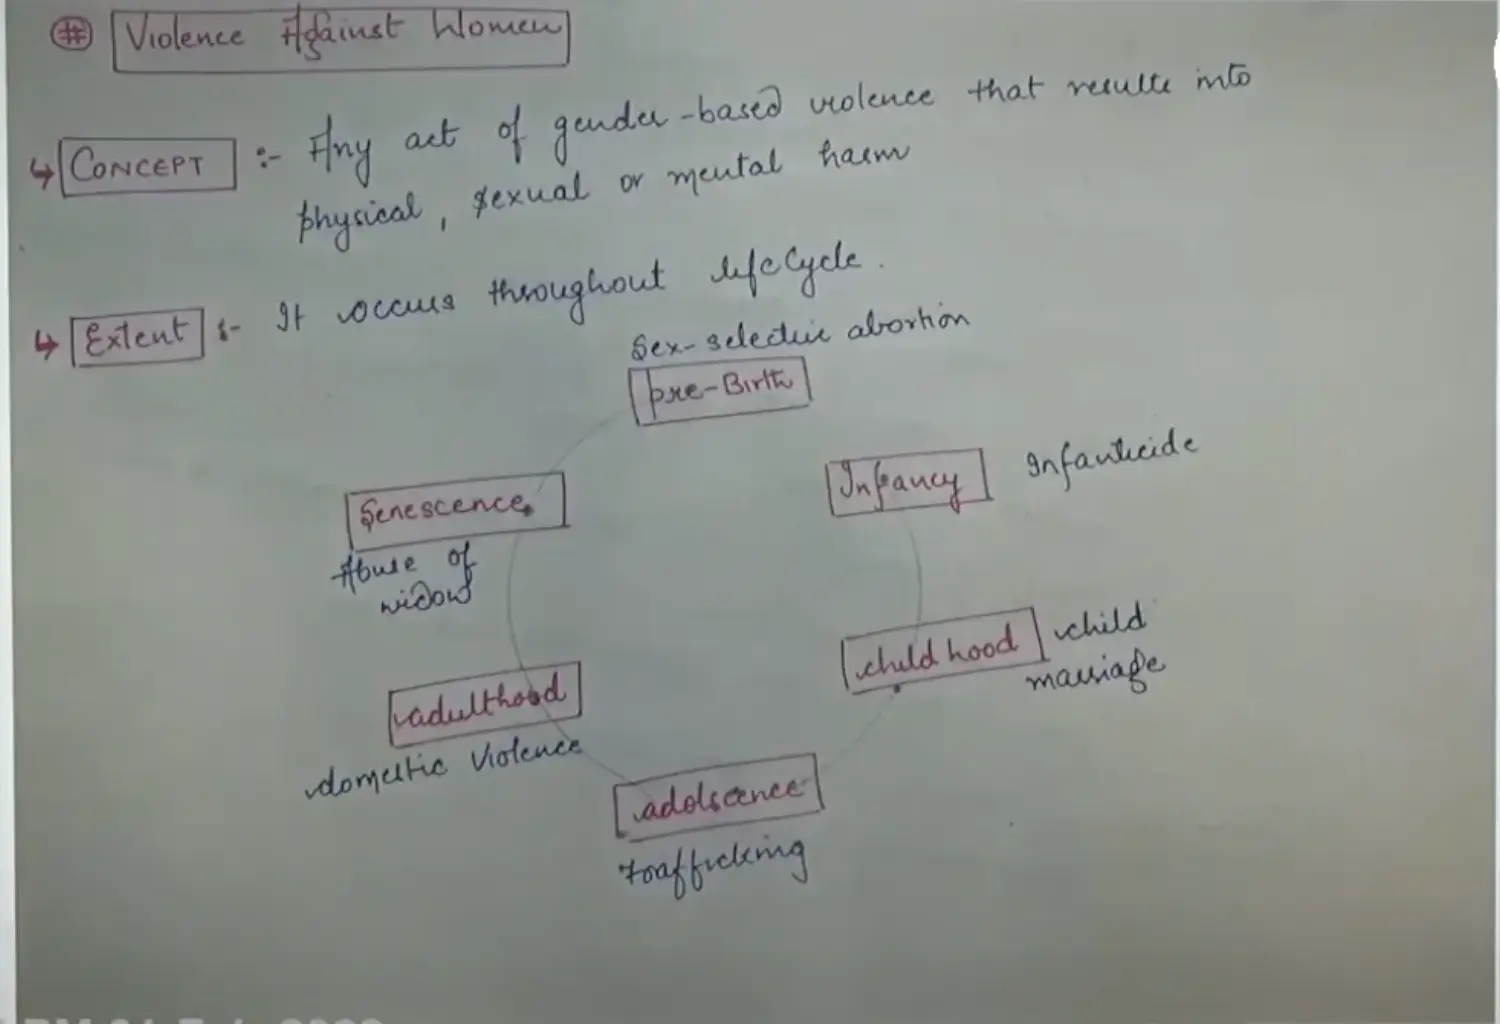 # Violence Against Women
↳ CONCEPT :- Any act of gender-based violence that results into
physical, sexual or mental harm
↳ Extent :- It occurs throughout lifecycle.
Sex-selective abortion
pre-Birth
Infancy Infanticide
Senescence
Abuse of
widow
childhood child
marriage
adulthood
domestic Violence
adolscence
trafficking